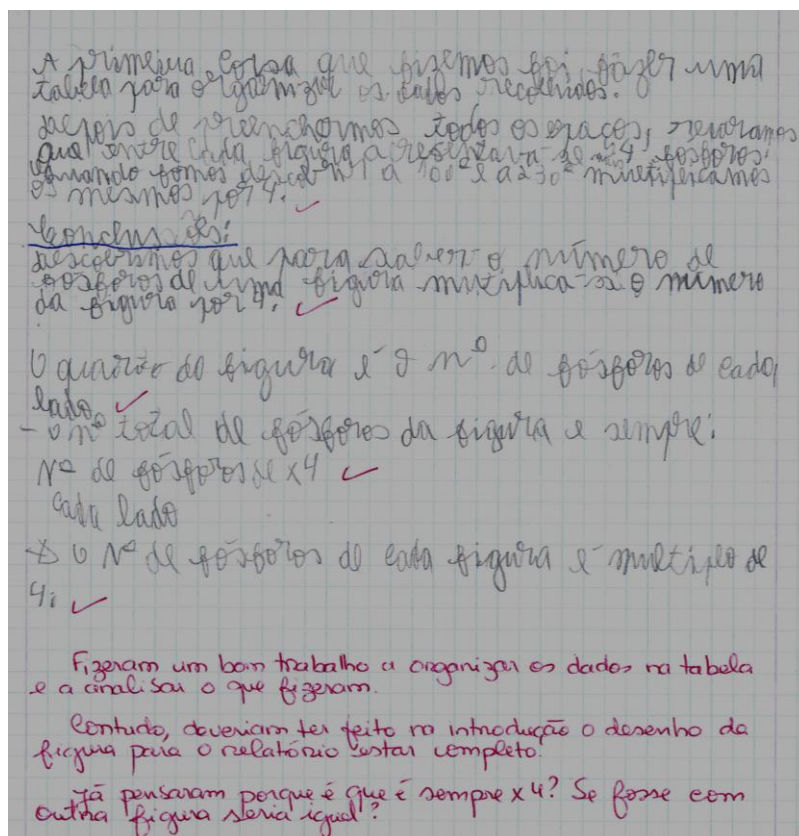 A primeira coisa que fizemos foi fazer uma
tabela para organizar os dados recolhidos.
depois de preenchermos todos os espaços, reparamos
que entre cada figura acresentava-se 4 fosforos.
quando fomos descobrir a 100ª e a 230ª multiplicamos
os mesmos por 4.
Conclusões:
descobrimos que para saber o número de
fosforos de uma figura multiplica-se o número
da figura por 4.
O da figura é o nº de fósforos de cada
lado.
- o nº total de fósforos da figura e sempre:
Nº de fósforos de x4
cada lado
O Nº de fósforos de cada figura é multiplo de
4;
Fizeram um bom trabalho a organizar os dados na tabela
e a analisar o que fizeram.
Contudo, deveriam ter feito na introdução o desenho da
figura para o relatório estar completo.
Já pensaram porque é que é sempre x 4? Se fosse com
outra figura seria igual?